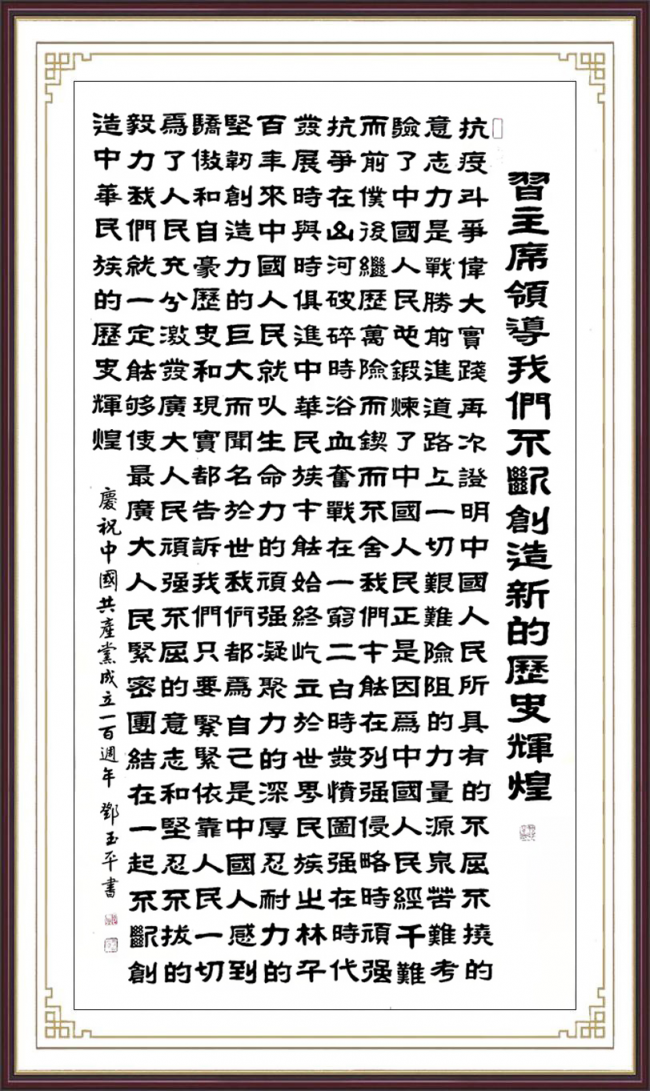 習主席領導我們不斷創造新的歷史輝煌
抗疫斗爭偉大實踐再次證明中國人民所具有的不屈不撓的
意志力是戰勝前進道路上一切艱難險阻的力量源泉苦難考
險了中國人民也鍛煉了中國人民正是因爲中國人民經千難
而前僕後繼歷萬險而鍥而不舍我們才能在列强侵略時頑强
抗爭在山河破碎時浴血奮戰在一窮二白時發憤圖强在時代
發展時與時俱進中華民族才能始終屹立於世界民族之林千
百年來中國人民就以生命力的頑强凝聚力的深厚忍耐力的
堅韌創造力的巨大而聞名於世我們都爲自己是中國人感到
驕傲和自豪歷史和現實都告訴我們只要緊緊依靠人民一切
爲了人民充分激發廣大人民頑强不屈的意志和堅忍不拔的
毅力我們就一定能够使最廣大人民緊密團結在一起不斷創
造中華民族的歷史輝煌
慶祝中國共産黨成立一百週年 鄧玉平書